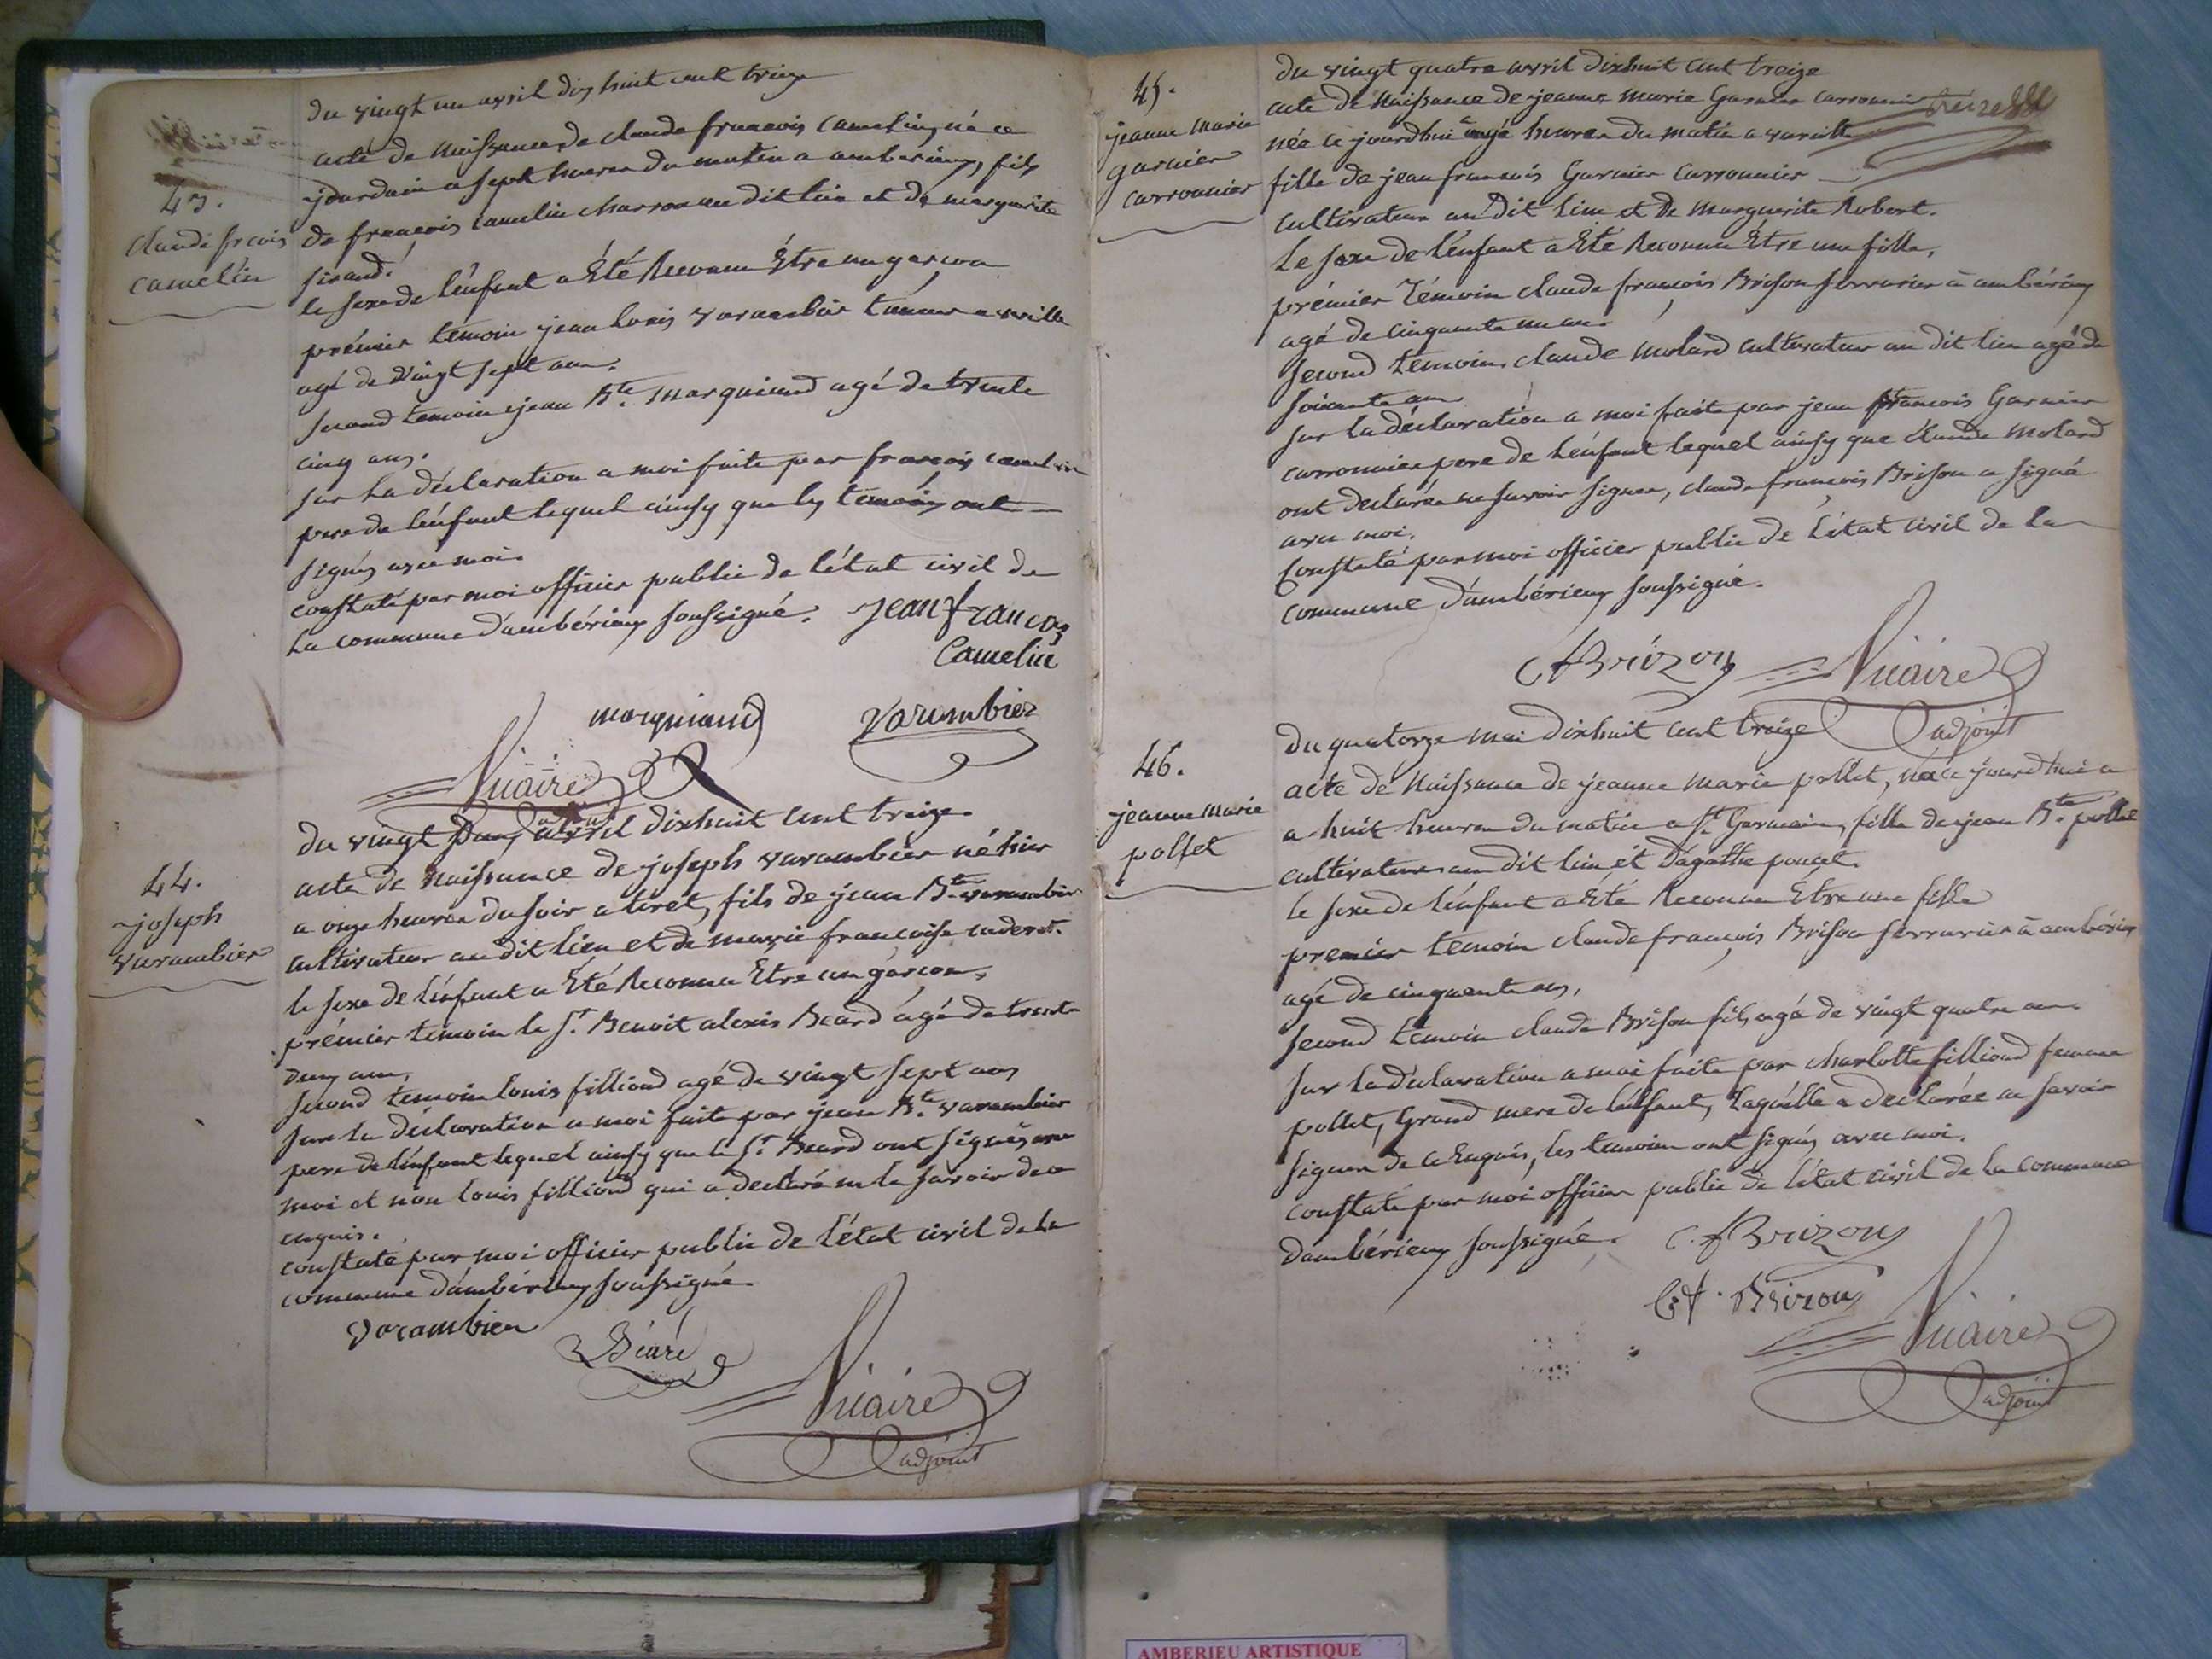 du vingt un avril dix huit cent treize
43.
claude frcois
camelin
acte de Naissance de claude francois camelin, né ce
jourdhui a sept heures du matin a amberieux, fils
de francois camelin charron au dit lieu et de marguerite
sirand.
le sexe de l'énfant a Été Reconnu Être un garcon
prémier témoin jean louis varambier
agé de vingt sept ans.
second temoin jean Bte. marguiand agé de trente
cinq ans.
sur la déclaration a moi faite par françois camelin
pere de lénfant lequel ainsy que les témoins ont
signés avec moi.
constaté par moi officier public de l'état civil de
la commune d'ambérieux soussigné.
jean francois
Camelin
marguiand
varambier
Vicaire
adjoint
44.
joseph
varambier
du vingt deux avril dixhuit cent treize.
acte de Naissance de joseph varambier né hier
a onze heures du soir a tiret, fils de jean Bte. varambier
cultivateur au dit lieu et de marie francoise
le sexe de l'énfant a Été Reconnu Etre un garcon,
prémier temoin le Sr. Benoit alexis Beard agé de trente
deux ans,
second temoin louis filliond agé de vingt sept ans
sur la déclaration a moi faite par jean Bte. varambier
pere de l'énfant lequel ainsy que le Sr. Beard ont signés avec
moi et non louis filliond qui a declaré ne le savoir de ce
enquis.
constaté par moi officier public de l'état civil de la
commune d'ambérieux soussigné.
varambier
Béard
Vicaire
adjoint
45.
jeanne marie
garnier
carronnier
du vingt quatre avril dixhuit cent treize
acte de Naissance de jeanne marie Garnier carronnier
née ce jourdhui a onze heures du matin a vareille
fille de jean francois Garnier carronnier
cultivateur au dit lieu et de marguerite Robert.
Le sexe de l'énfant a Eté Reconnu Etre une fille,
prémier témoin claude françois Brison serrurier à ambérieux
agé de cinquante un ans.
second temoin claude molard cultivateur au dit lieu agé de
soixante ans
sur la déclaration a moi faite par jean francois Garnier
carronnier pere de l'énfant lequel ainsy que claude molard
ont declarés ne savoir signer, claude francois Brison a signé
avec moi.
Constaté par moi officier public de l'état civil de la
commune d'ambérieux soussigné.
cf Brizon
Vicaire
adjoint
46.
jeanne marie
pollet
du quatorze mai dixhuit cent treize
acte de Naissance de jeanne marie pollet, née ce jourdhui a
a huit heures du matin a St. Germain, fille de jean Bte. pollet
cultivateur au dit lieu et d'agathe poncet.
le sexe de l'énfant a Eté Reconnu Etre une fille
premier temoin claude françois Brison serrurier à ambérieux
agé de cinquante ans,
second temoin claude Brison fils agé de vingt quatre ans.
sur la déclaration a moi faite par charlotte filliond femme
pollet, Grand mere de l'énfant, laquélle a declarée ne savoir
signer de ce Enquis, les temoins ont signés avec moi.
constaté par moi officier public de l'état civil de la commune
d'ambérieux soussigné.
c. f Brizon
Brizon
Vicaire
adjoint
AMBERIEU ARTISTIQUE